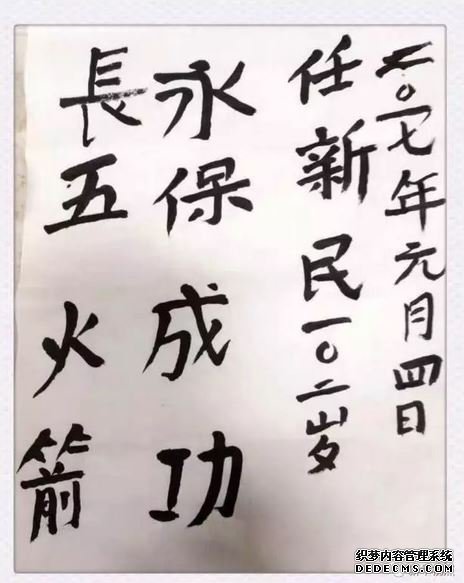 長五火箭
永保成功
任新民一〇二岁
二〇一七年元月四日
织梦内容管理系统
DEDECMS.COM